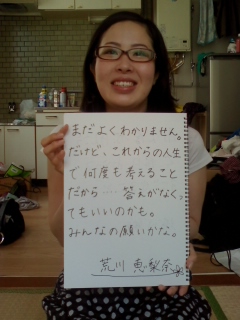 まだよくわかりません。
だけど、これからの人生
で何度も考えること
だから……答えがなくっ
てもいいのかも。
みんなの願いかな。
荒川 恵梨奈